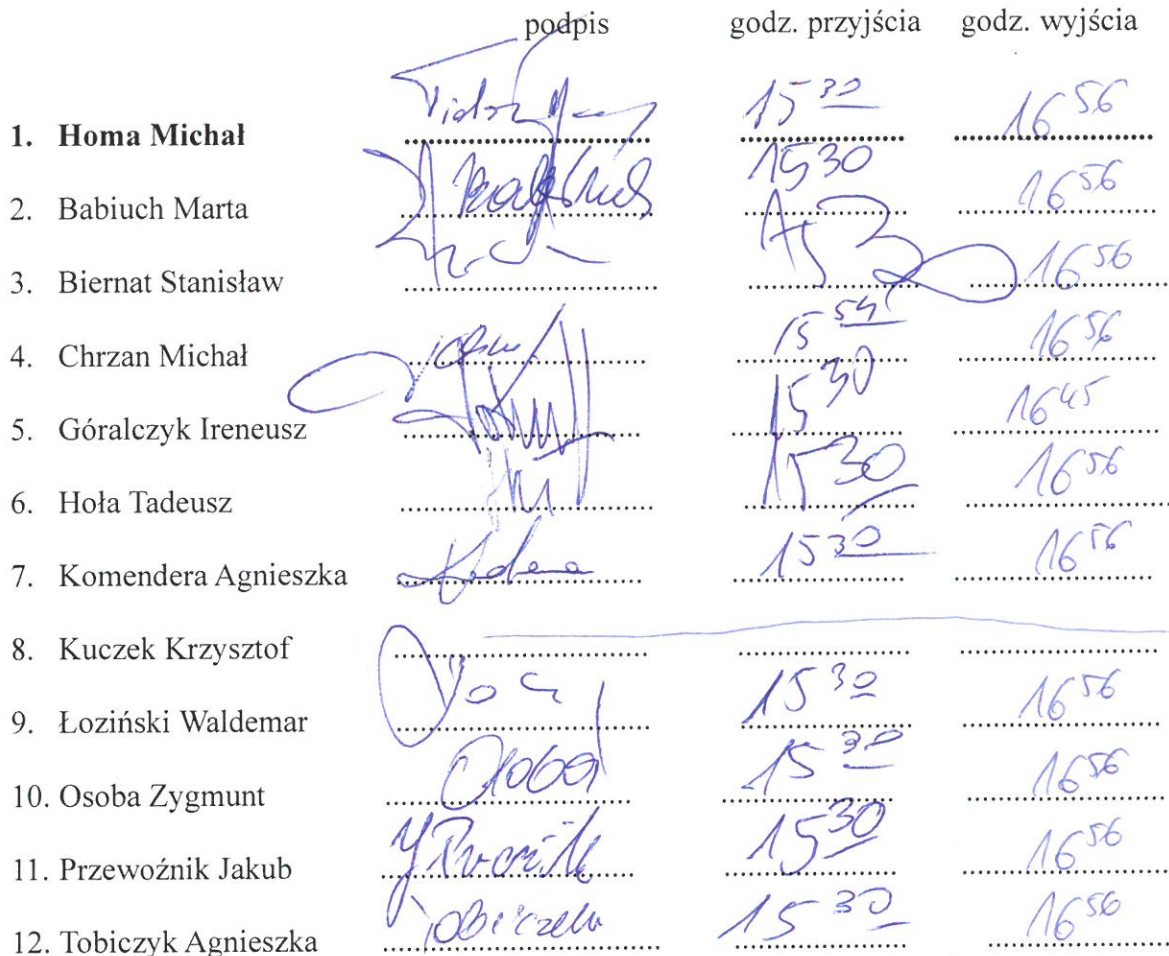 podpis godz. przyjścia godz. wyjścia
1. Homa Michał 15 30 16 56
2. Babiuch Marta 15 30 16 56
3. Biernat Stanisław 16 56
4. Chrzan Michał 15 54 16 56
5. Góralczyk Ireneusz 15 30 16 45
6. Hoła Tadeusz 15 30 16 56
7. Komendera Agnieszka 15 30 16 56
8. Kuczek Krzysztof
9. Łoziński Waldemar 15 30 16 56
10. Osoba Zygmunt Osoba 15 30 16 56
11. Przewoźnik Jakub 15 30 16 56
12. Tobiczyk Agnieszka 15 30 16 56